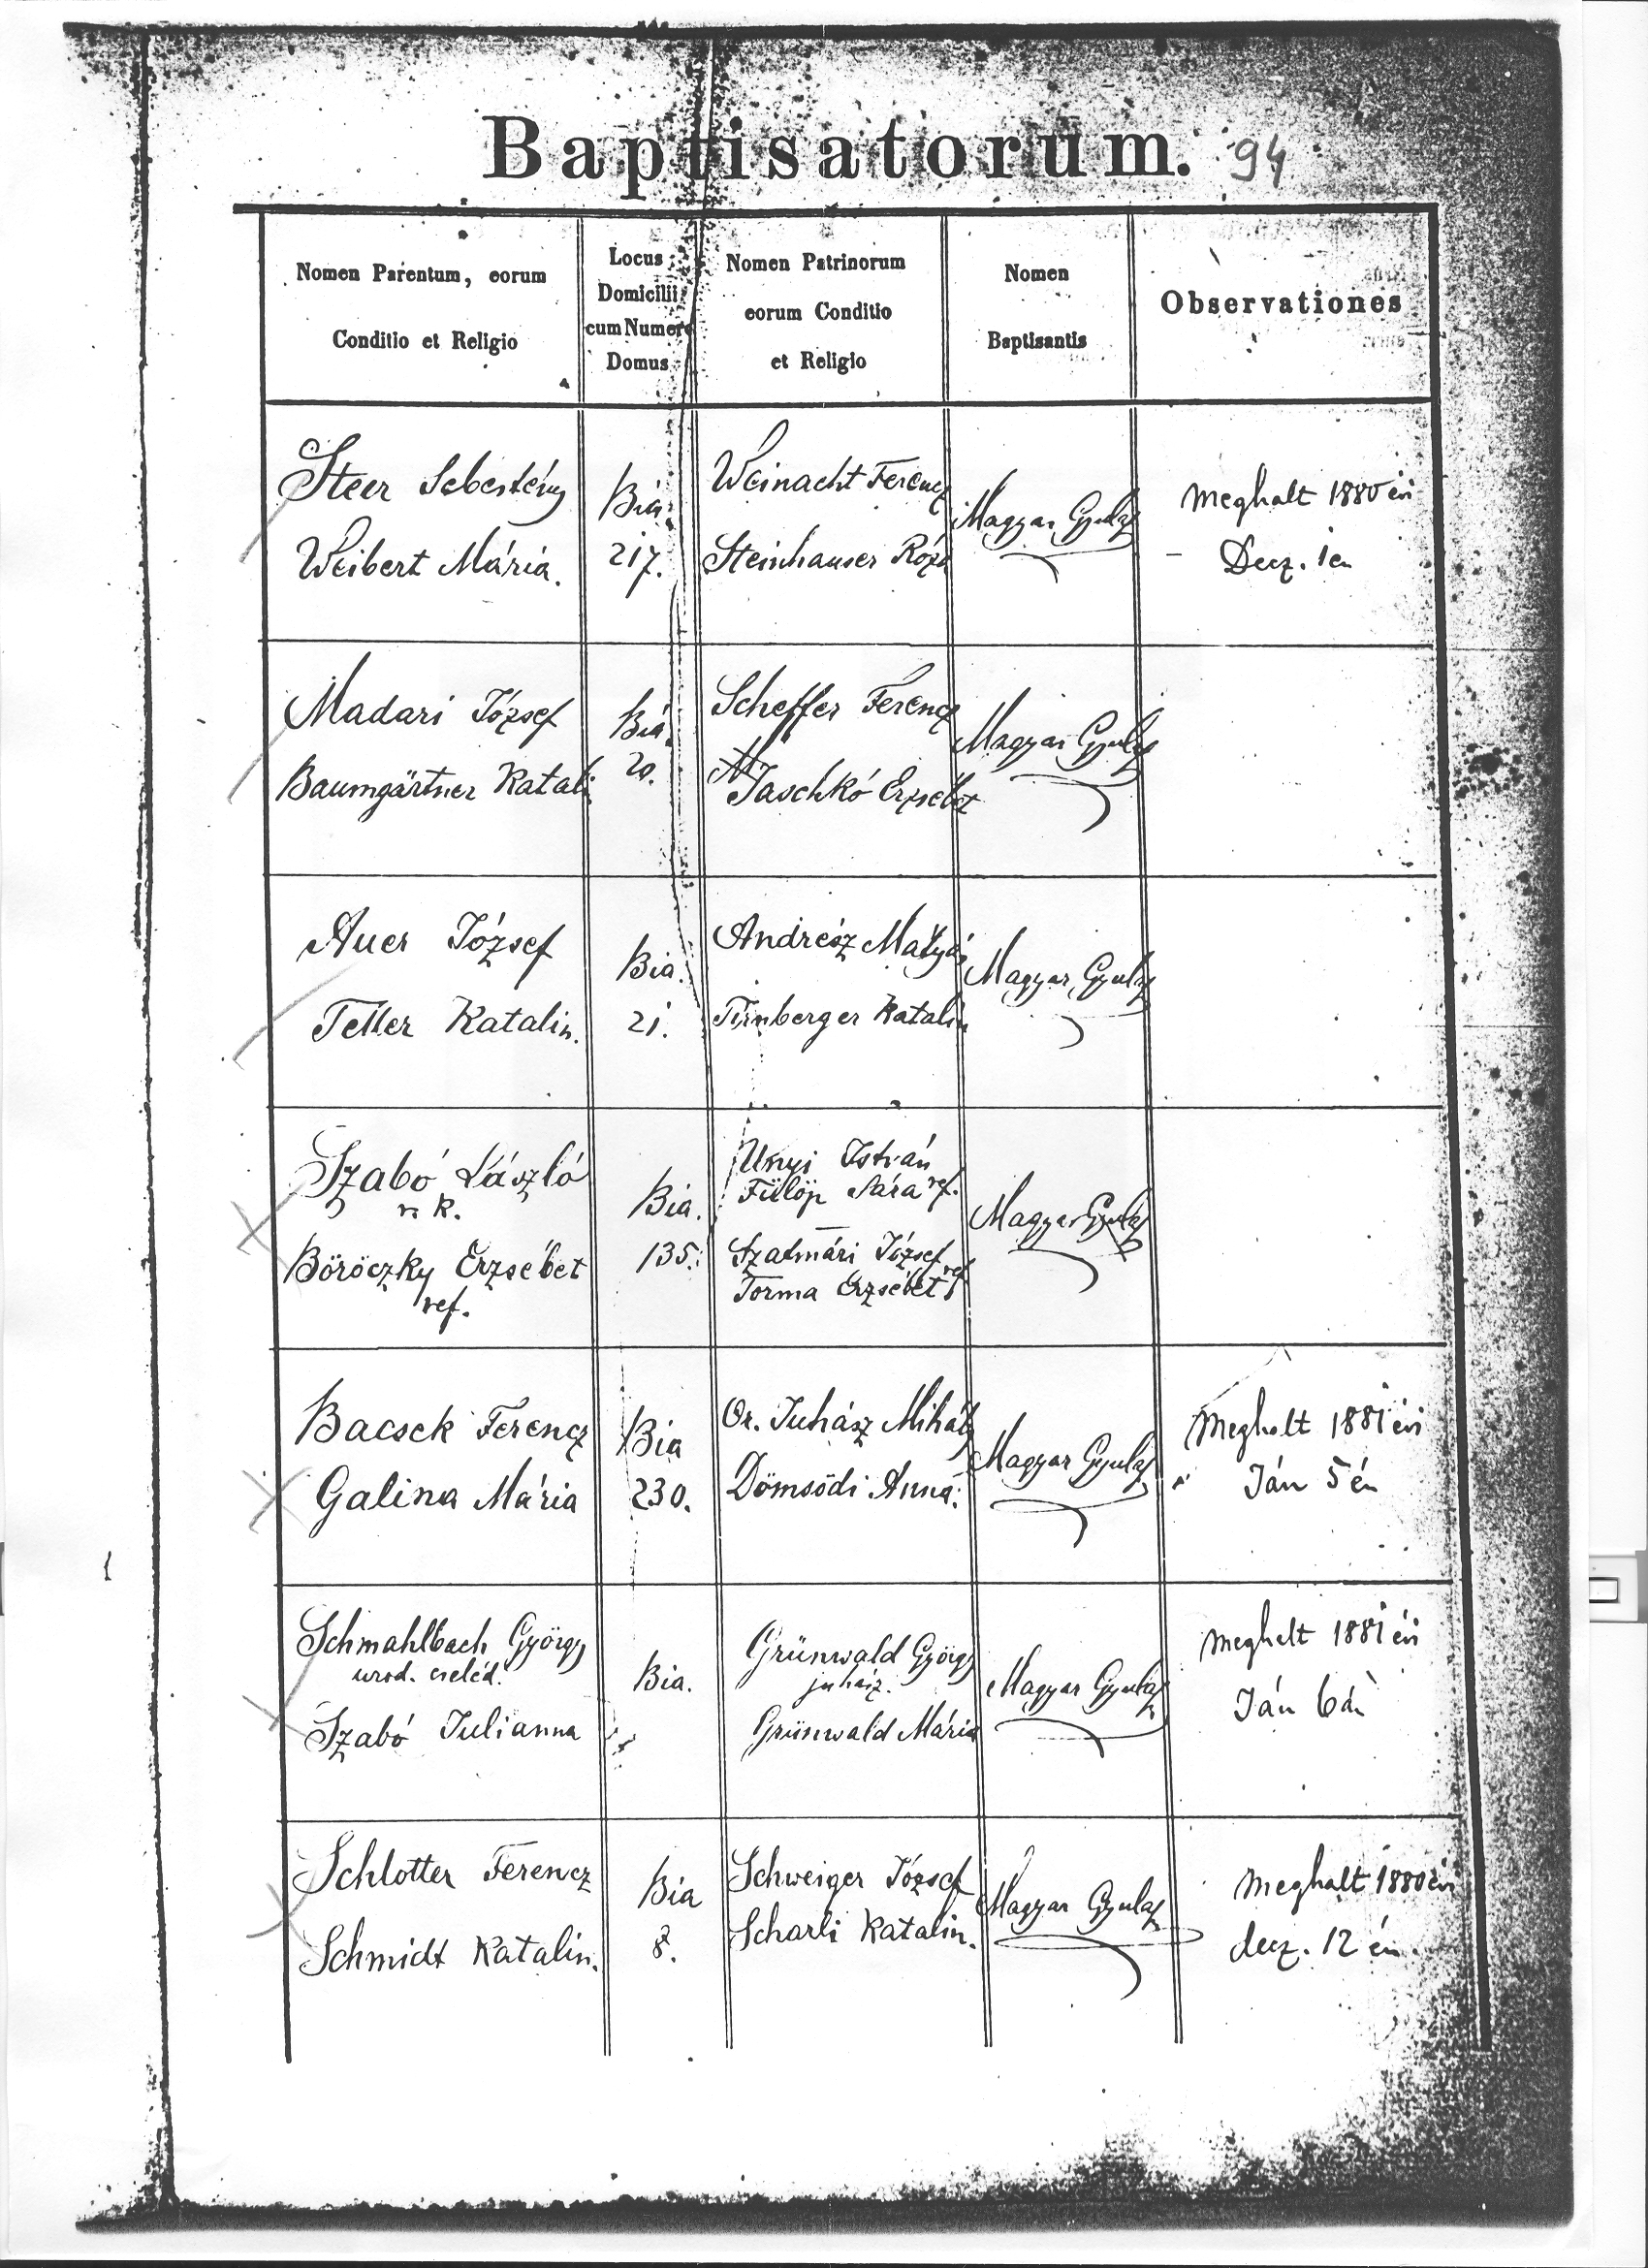 Baptisatorum. 94
Nomen Parentum, eorum
Conditio et Religio
Locus
Domicilii
cum Numero
Domus
Nomen Patrinorum
eorum Conditio
et Religio
Nomen
Baptisantis
Observationes
Steer Sebestény
Weibert Mária.
Bia.
217.
Weinacht Ferencz
Steinhauser Róza
Magyar Gyula
Meghalt 1880 évi
Decz. 1én
Madari József
Baumgärtner Katali
Bia.
20.
Scheffer Ferencz
Jaschkó Erzsébet
Magyar Gyula
Auer József
Teller Katalin.
Bia.
21.
Andrész Mátyás
Tirnberger Katalin
Magyar Gyula
Szabó László
r. k.
Böröczky Erzsébet
ref.
Bia.
135.
Unyi István
Fülöp Sára ref.
Szatmári József
Torma Erzsébet ref
Magyar Gyula
Bacsek Ferencz
Galina Mária
Bia
230.
Or. Juhász Mihály
Dömsödi Anna.
Magyar Gyula
Meghalt 1881 évi
Ján 5 én
Schmahlbach György
urod. cseléd.
Szabó Julianna
Bia.
Grünwald György
juhász.
Grünwald Mária
Magyar Gyula
Meghalt 1881 évi
Ján 6án
Schlotter Ferencz
Schmidt Katalin.
Bia
8.
Schweiger József
Scharli Katalin.
Magyar Gyula
Meghalt 1880 évi
decz. 12 én.